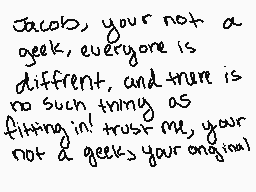 Jacob, your not a
geek, everyone is
diffrent, and there is
no such thing as
fitting in! trust me, your
not a geek, your original